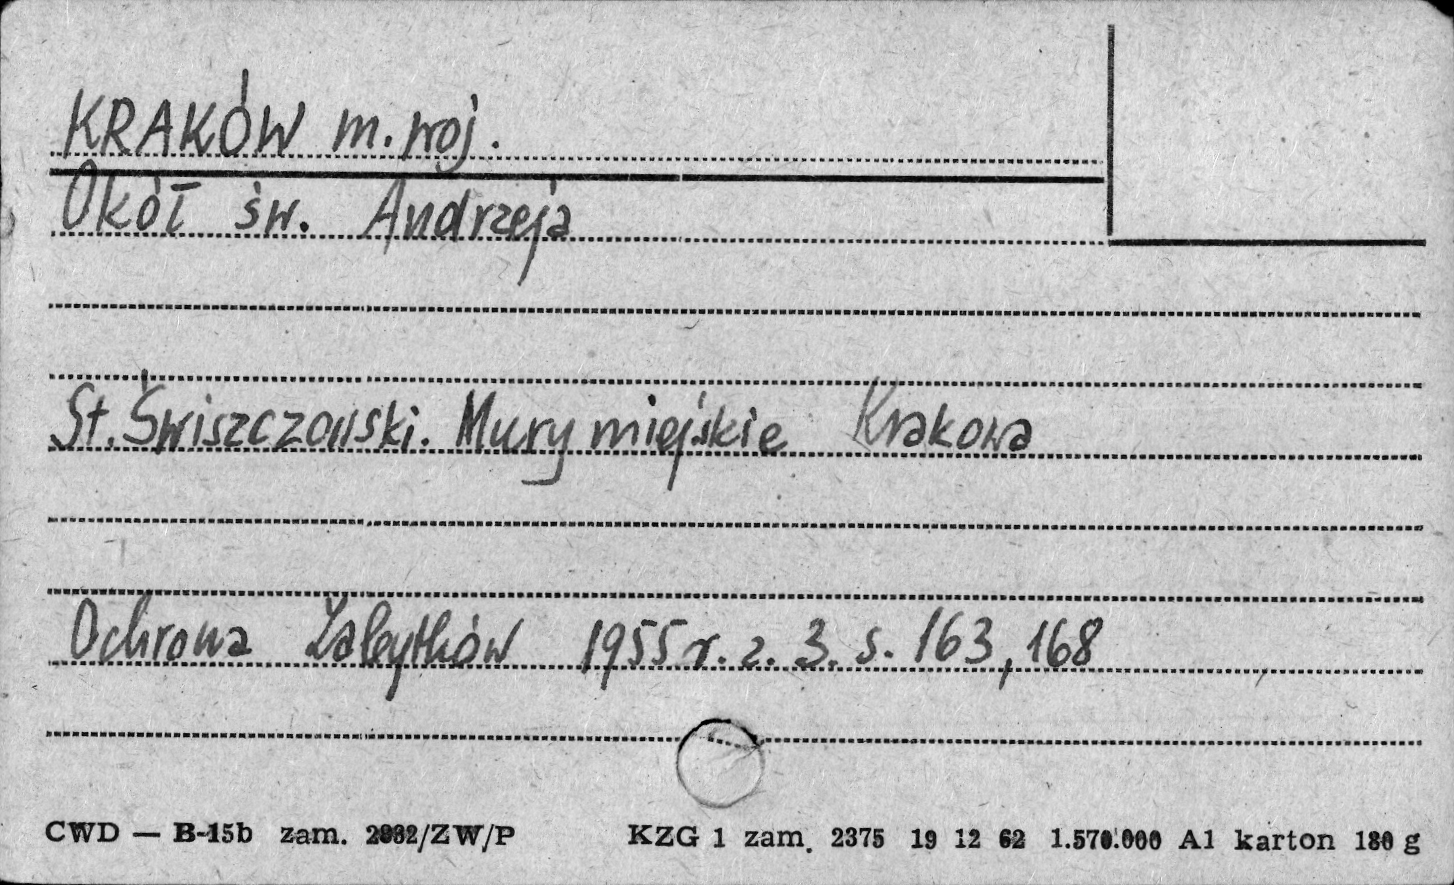 KRAKÓW m. woj.
Okół św. Andrzeja
St. Świszczowski. Mury miejskie Krakowa
Ochrona Zabytków 1955 r. z. 3. s. 163, 168
CWD — B-15b zam. /ZW/P KZG 1 zam. 2375 19 12 62 1.570.000 A1 karton 180 g